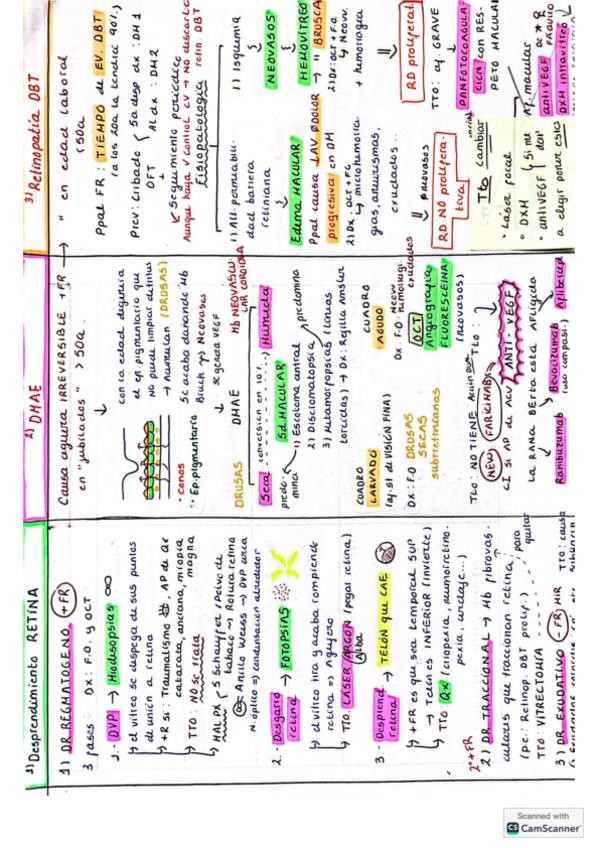 1) Desprendimiento RETINA
1) DR REGMATOGENO (+FR)
3 fases: DX: F.O. y OCT
1.- DVP → Miodisopsias
↳ el vítreo se despega de sus puntos
de unión a retina
↳ +R si: Traumatismo, AP de Qx
catarata, anciana, miopia
magna
↳ TTO: NO se trata
↳ HALL PX → S Schauffer (Polvo de
tabaco → Rotura retina
Anillo Weiss → DVP area
N. óptico => condensación alrededor
2.- Desgarro retina → FOTOPSIAS
↳ el vítreo tira y acaba rompiende
retina => Agujero
↳ TTO: LASER ARGON (pegar retina)
3.- Desprend retina → TELÓN que CAE
↳ +FR es que sea temporal SUP
→ Telón es INFERIOR (invierte)
↳ TTO: QX
2º +FR
2) DR TRACCIONAL → Mb fibrovas-
culares que traccionan retina
(p.e.: Retinop. DBT prolif.)
TTO: VITRECTOMÍA para quitar
3) DR EXUDATIVO (-FR) MIR
TTO: causa
2) DMAE
Causa aguda IRREVERSIBLE +FR
en "jubilados" > 50a
con la edad degenera
el ep. pigmentario que
no puede limpiar detritus
→ Acumulan (DRUSAS)
Se acaba dañando Mb
Bruch → Neovasos
se genera VEGF
• Conos
• Ep. pigmentario
DRUSAS DMAE Mb NEOVASCULAR COROIDEA
Seca conversión en 10% Húmeda
Sd. MACULAR
predomina predomina
1) Escotoma central
2) Discromatopsia
3) Metamorfopsias (líneas
torcidas) → DX: Rejilla Amsler
CUADRO LARVADO
CUADRO AGUDO
DX: F.O DRUSAS
SECAS
subretinianas
OCT
Angiografia
FLUORESCEINA
(neovasos)
TTO: NO TIENE
TTO: ANTI-VEGF
NEW FARICIMAB
CI si AP de ACV
LA RANA BERTA ESTÁ AFLIGIDA
Ranibizumab
Bevacizumab
(uso compasi.)
Aflibercept
3) Retinopatía DBT
→ " en edad laboral
< 50a
Ppal FR: TIEMPO de EV. DBT
(a los 20a la tendrá 90%)
Prev: Cribado
5a desp dx: DM1
Al dx: DM2
OFT
+
Seguimiento periódico
Aunque haya ↓ control CV → NO descarta
retin. DBT
Fisiopatología
1) Alt. permeabili-
dad barrera
retiniana
1) Isquemia
NEOVASOS
Edema MACULAR
HEMOVÍTREO
Ppal causa ↓AV Ø DOLOR → " BRUSCA
progresiva en DM
2) DX: OCT + F.O
↳ microhemorra-
gias, aneurismas,
exudados...
2) DX: OCT + F.O
↳ Neov.
+ hemorragia
Ø neovasos
RD NO prolifera-
tiva
RD proliferat.
TTO cambiar
• Láser focal
• DXH
• antiVEGF
a elegir poner esto
TTO: aj. GRAVE
PANFOTOCOAGULA-
CIÓN con RES-
PETO MACULAR
antiVEGF
DXH intravítreo
Scanned with
CS CamScanner